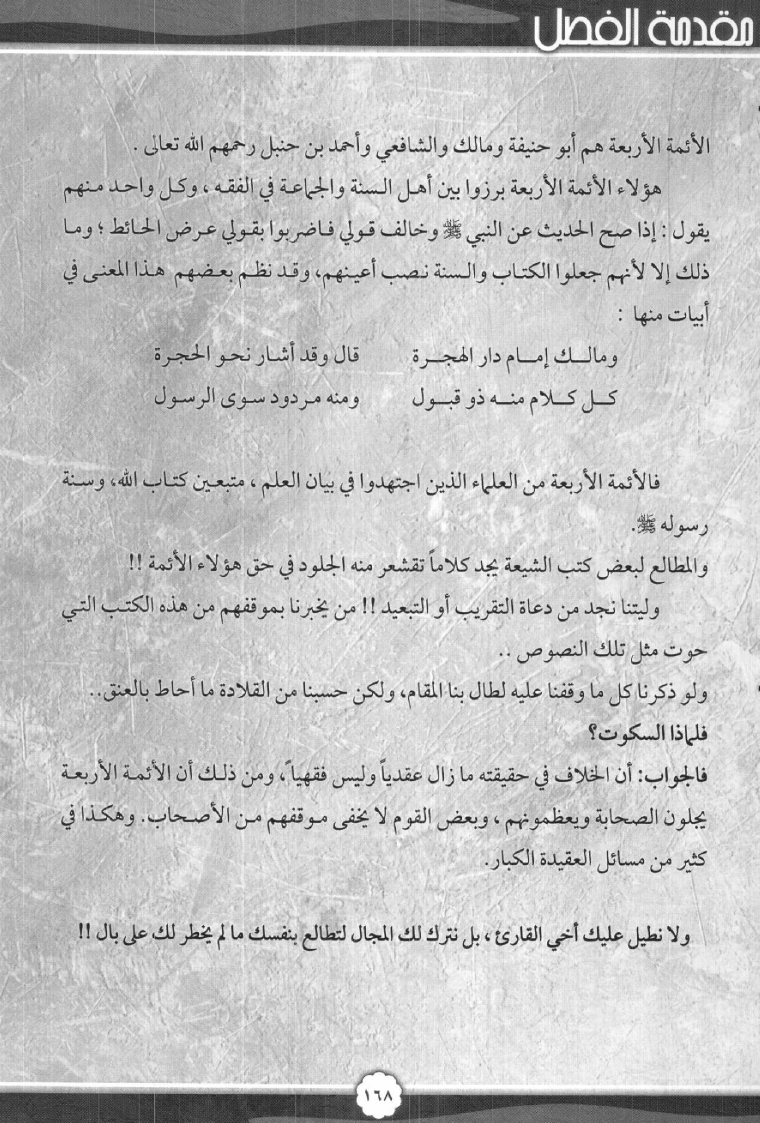 مقدمة الفصل
الأئمة الأربعة هم أبو حنيفة ومالك والشافعي وأحمد بن حنبل رحمهم الله تعالى .
هؤلاء الأئمة الأربعة برزوا بين أهل السنة والجماعة في الفقه ، وكل واحد منهم
يقول : إذا صح الحديث عن النبي ﷺ وخالف قولي فاضربوا بقولي عرض الحائط ؛ وما
ذلك إلا لأنهم جعلوا الكتاب والسنة نصب أعينهم، وقد نظم بعضهم هذا المعنى في
أبيات منها :
ومالك إمام دار الهجرة قال وقد أشار نحو الحجرة
كل كلام منه ذو قبول ومنه مردود سوى الرسول
فالأئمة الأربعة من العلماء الذين اجتهدوا في بيان العلم ، متبعين كتاب الله، وسنة
رسوله ﷺ.
والمطالع لبعض كتب الشيعة يجد كلاماً تقشعر منه الجلود في حق هؤلاء الأئمة !!
وليتنا نجد من دعاة التقريب أو التبعيد !! من يخبرنا بموقفهم من هذه الكتب التي
حوت مثل تلك النصوص ..
ولو ذكرنا كل ما وقفنا عليه لطال بنا المقام، ولكن حسبنا من القلادة ما أحاط بالعنق..
فلماذا السكوت؟
فالجواب: أن الخلاف في حقيقته ما زال عقدياً وليس فقهياً، ومن ذلك أن الأئمة الأربعة
يجلون الصحابة ويعظمونهم ، وبعض القوم لا يخفى موقفهم من الأصحاب. وهكذا في
كثير من مسائل العقيدة الكبار.
ولا نطيل عليك أخي القارئ ، بل نترك لك المجال لتطالع بنفسك ما لم يخطر لك على بال !!
١٦٨